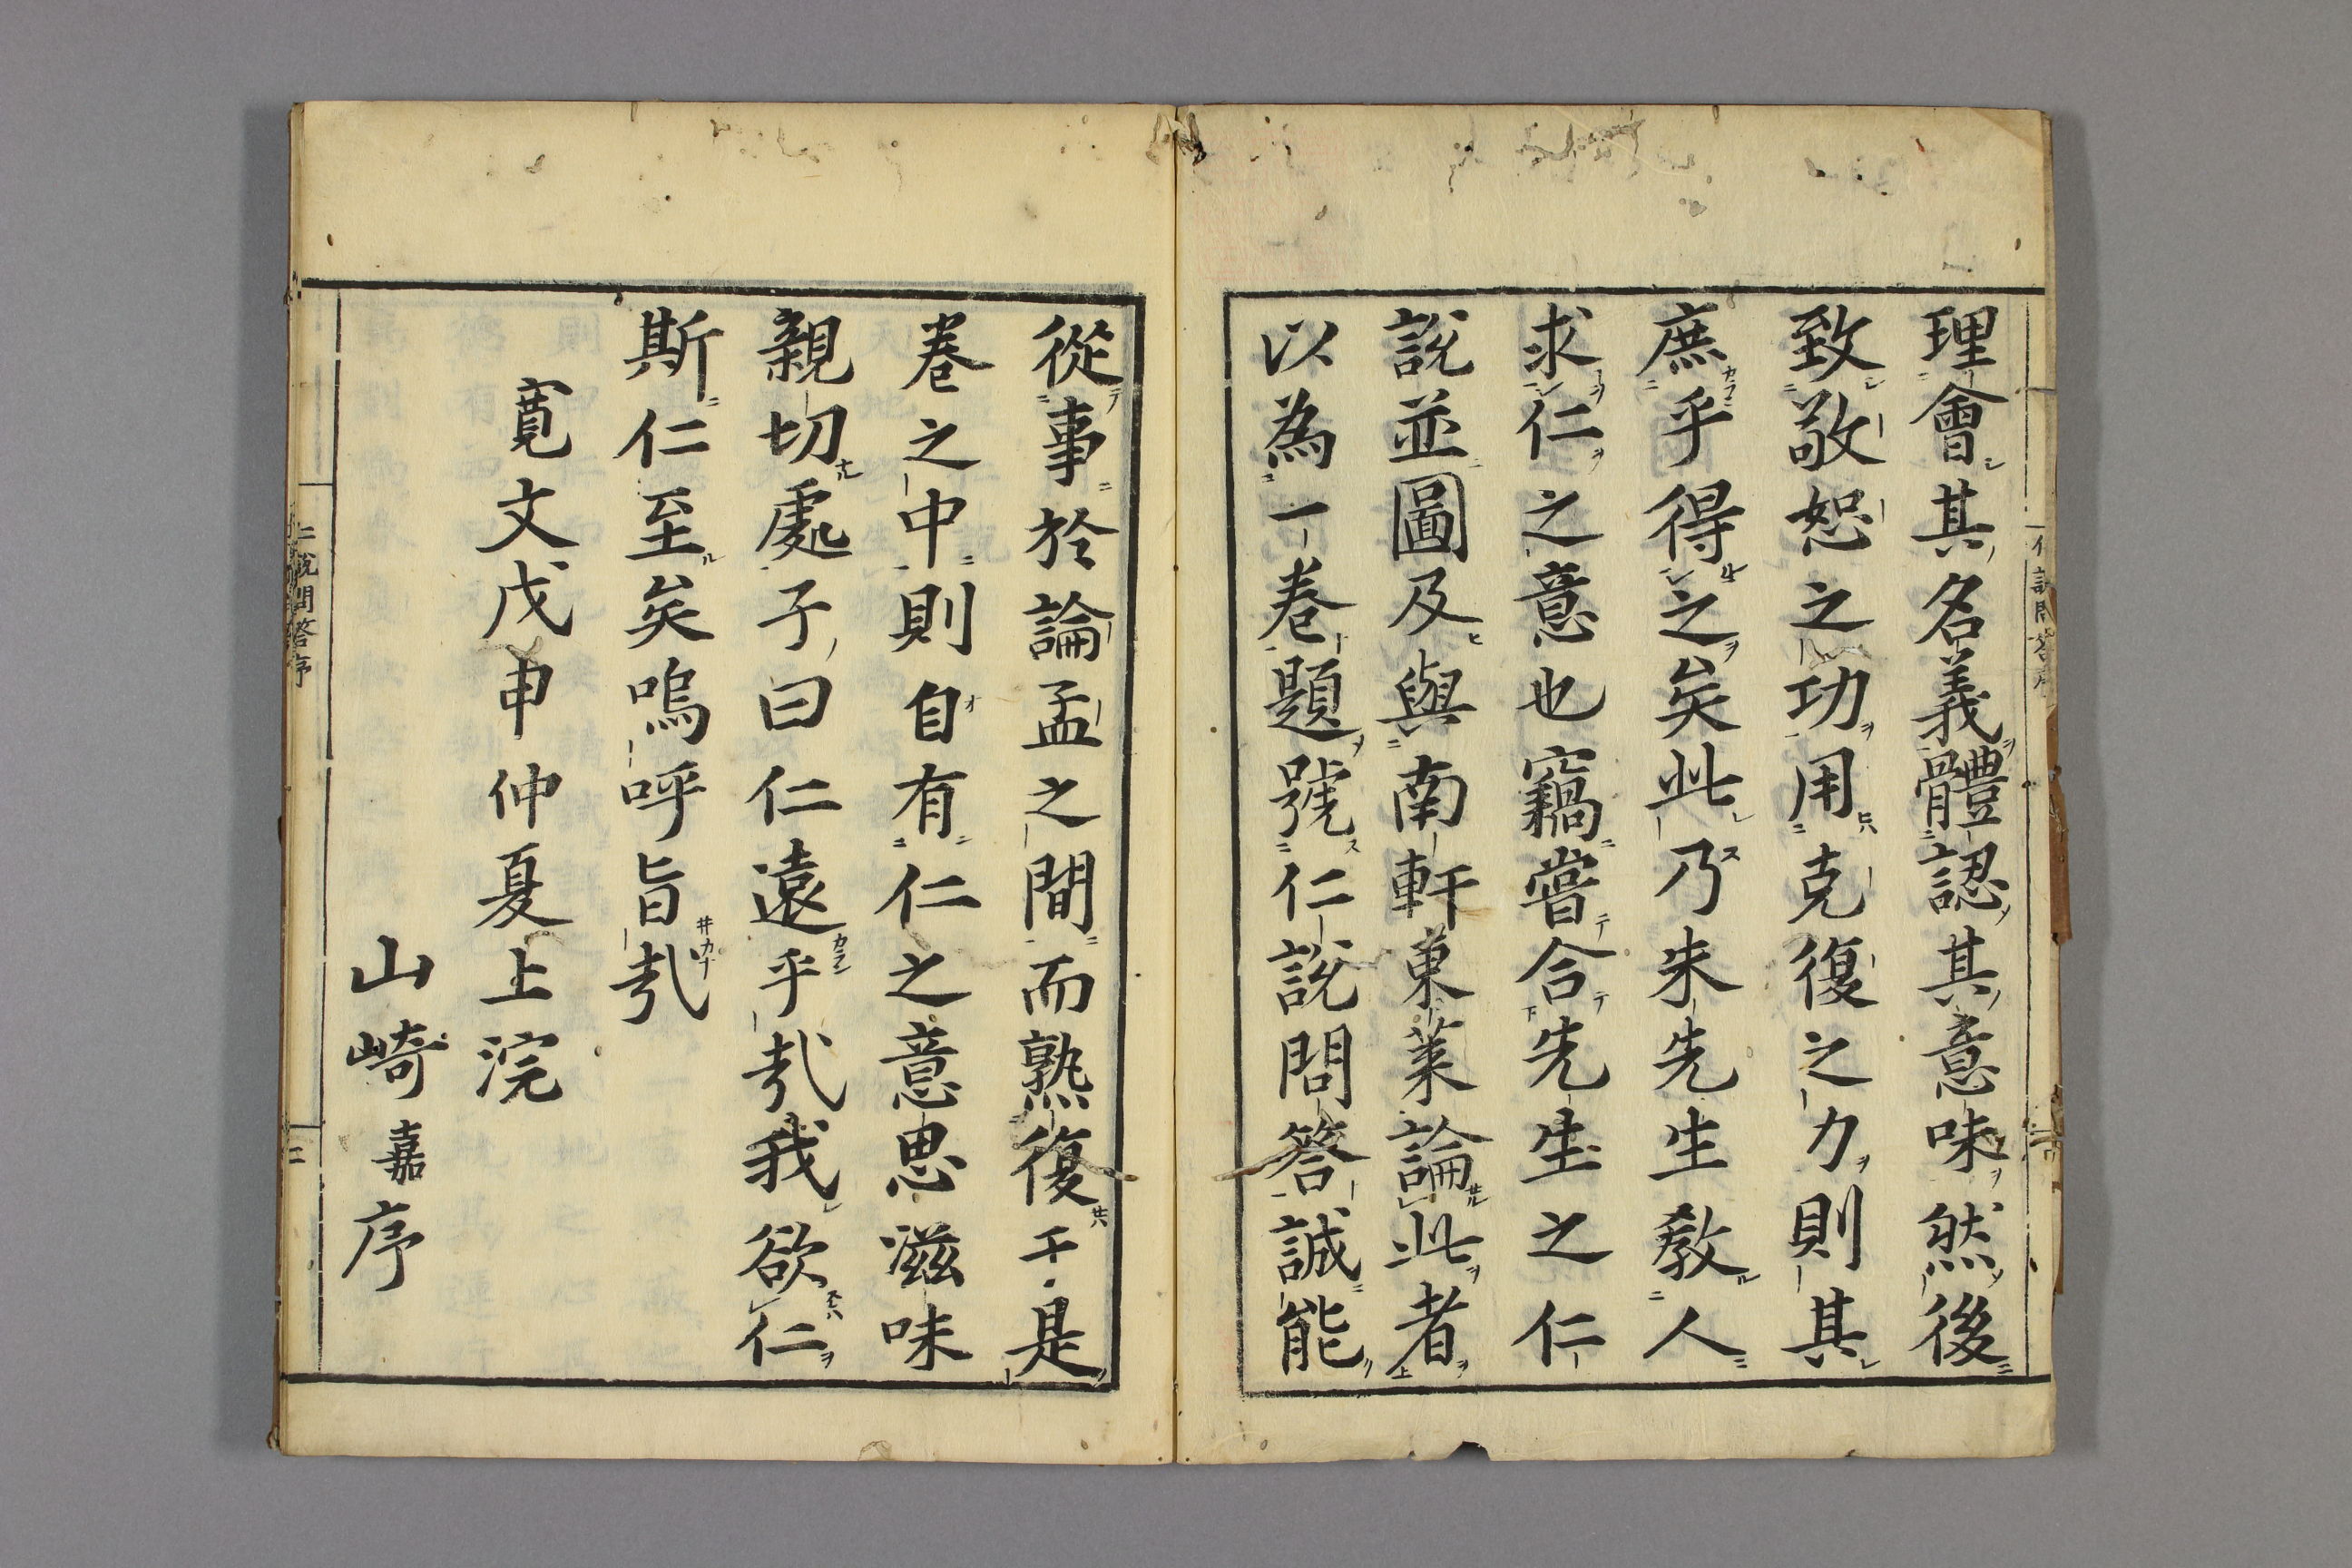 理會其名義體認其意味然後
致敬恕之功用克復之力則其
庶乎得之矣此乃朱先生敎人
求仁之意也竊嘗合先生之仁
說並圖及與南軒東萊論此者
以為一卷題號仁說問答誠能
從事於論孟之間而熟復于是
卷之中則自有仁之意思滋味
親切處子曰仁遠乎哉我欲仁
斯仁至矣嗚呼旨哉
寬文戊申仲夏上浣
山崎嘉序
仁說問答序
二